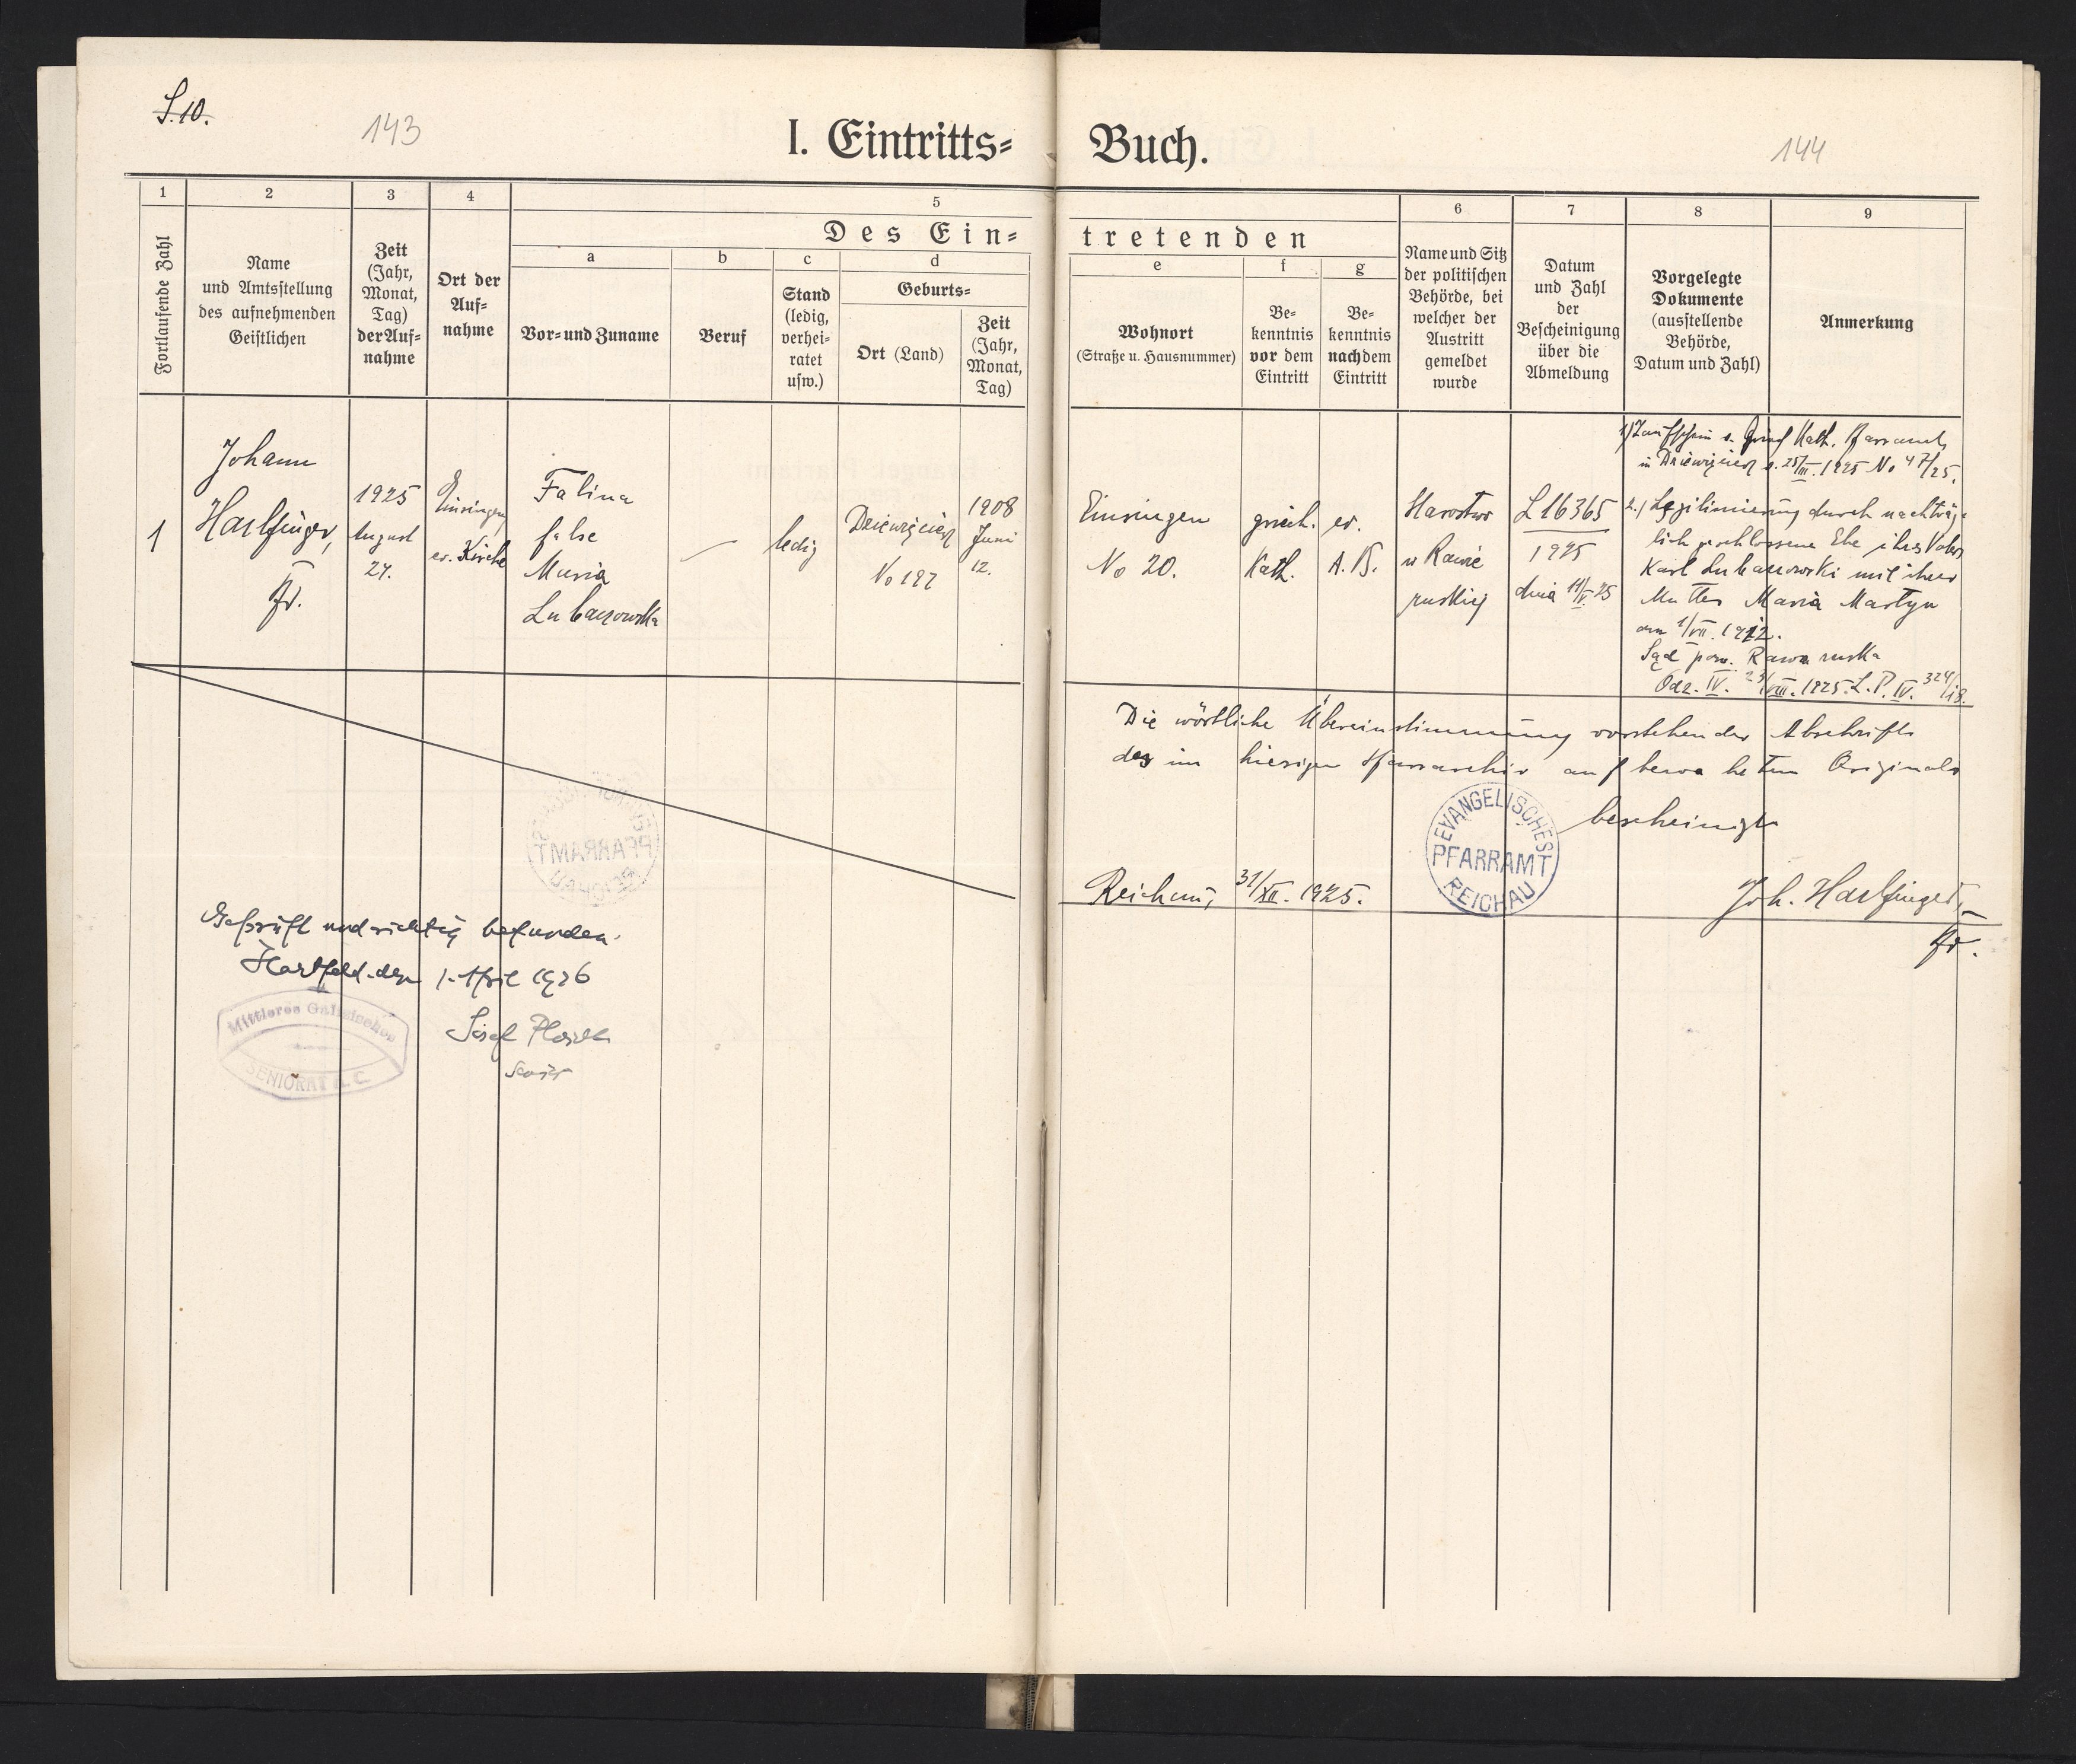 S. 10.
143
144
I. Eintritts= Buch.
1
2
3
4
5
6
7
8
9
Des Ein= tretenden
Fortlaufende Zahl
Name
und Amtsstellung
des aufnehmenden
Geistlichen
Zeit
(Jahr,
Monat,
Tag)
der Auf=
nahme
Ort der
Auf=
nahme
a
Vor= und Zuname
b
Beruf
c
Stand
(ledig,
verhei=
ratet
usw.)
d
Geburts=
Ort (Land)
Zeit
(Jahr,
Monat,
Tag)
e
Wohnort
(Straße u. Hausnummer)
f
Be=
kenntnis
vor dem
Eintritt
g
Be=
kenntnis
nach dem
Eintritt
Name und Sitz
der politischen
Behörde, bei
welcher der
Austritt
gemeldet
wurde
Datum
und Zahl
der
Bescheinigung
über die
Abmeldung
Vorgelegte
Dokumente
(ausstellende
Behörde,
Datum und Zahl)
Anmerkung
1
Johann
Harlfinger,
Pfr.
1925
August
27.
Einsingen,
ev. Kirche
Falina
false
Maria
Lubaczowska
—
ledig
Dziewięcierz
No 197
1908
Juni
12.
Einsingen
No 20.
griech.
Kath.
ev.
A. B.
Starostwo
w Rawie
ruskiej
L 16365
1925
dnia 11/V. 25
1) Taufschein d. Griech. Kath. Pfarramts
in Dziewięcierz v. 25/III. 1925 No 47/25.
2.) Legitimierung durch nachträg=
lich geschlossene Ehe ihres Vaters
Karl Lubaczowski mit ihrer
Mutter Maria Martyn
am 1/VII. 1912.
Sąd pow. Rawa ruska
Odz. IV. 23/VIII. 1925. L. P. IV. 324/18.
Die wörtliche Übereinstimmung vorstehender Abschrift
des im hiesigen Pfarrarchiv aufbewahrten Originals
bescheinigt
EVANGELISCHES
PFARRAMT
REICHAU
Reichau, 31/XII. 1925.
Joh. Harlfinger,
Pfr.
Geprüft und richtig befunden.
Hartfeld, den 1. April 1926
Mittleres Galizisches
SENIORAT A. C.
Senior